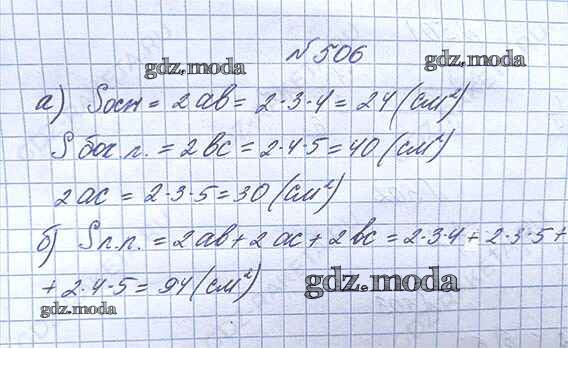 №506
gdz.moda gdz.moda
а) Sосн = 2ab = 2·3·4 = 24 (см²)
S бок.п. = 2bc = 2·4·5 = 40 (см²)
2ac = 2·3·5 = 30 (см²)
б) Sп.п. = 2ab + 2ac + 2bc = 2·3·4 + 2·3·5 +
+ 2·4·5 = 94 (см²)
gdz.moda
gdz.moda